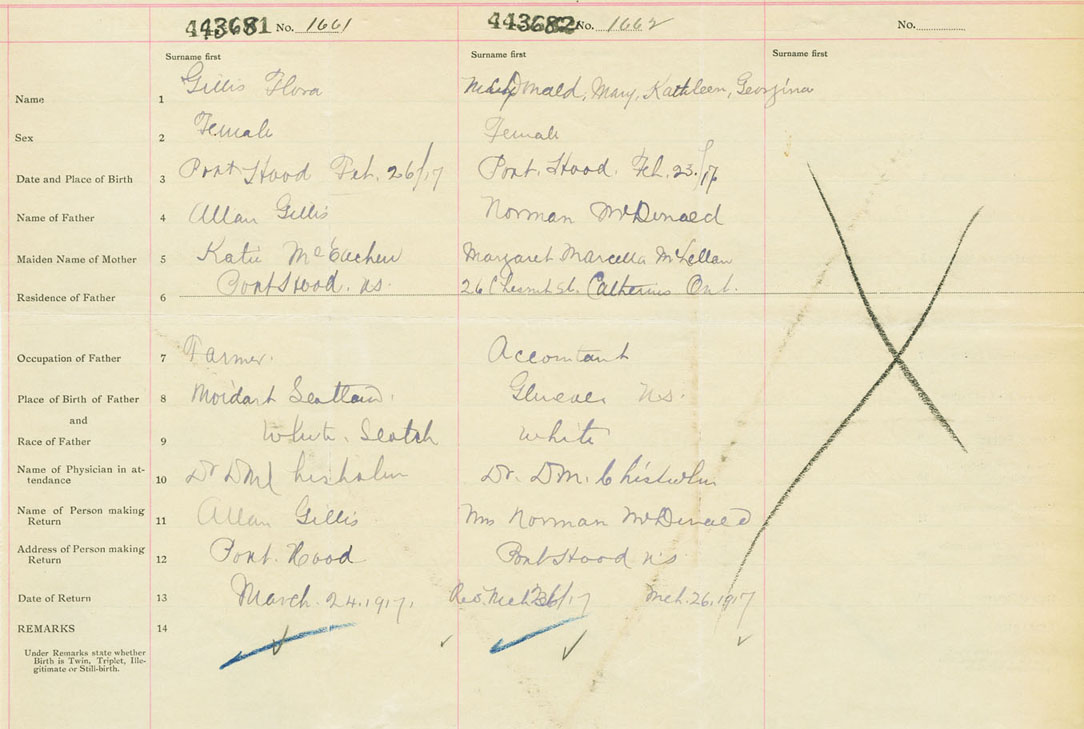 443681 No. 1661
443682 No. 1662
No.
Surname first
Surname first
Surname first
Name 1 Gillis Flora
McDonald, Mary, Kathleen, Georgina
Sex 2 Female
Female
Date and Place of Birth 3 Port Hood Feb. 26/17
Port. Hood. Feb. 23/17
Name of Father 4 Allan Gillis
Norman McDonald
Maiden Name of Mother 5 Katie McEachen
Margaret Marcella McLellan
Residence of Father 6 Port Hood. ns.
26 St. Catherines Ont.
Occupation of Father 7 Farmer.
Accountant
Place of Birth of Father 8 Moidart Scotland.
N.S.
and
Race of Father 9 White. Scotch
White
Name of Physician in at-
tendance 10 Dr DM Chisholm
Dr. DM. Chisholm
Name of Person making
Return 11 Allan Gillis
Mrs Norman McDonald
Address of Person making
Return 12 Port. Hood
Port Hood n.s
Date of Return 13 March. 24.1917.
Mch. 26.1917
REMARKS 14
Under Remarks state whether
Birth is Twin, Triplet, Ille-
gitimate or Still-birth.